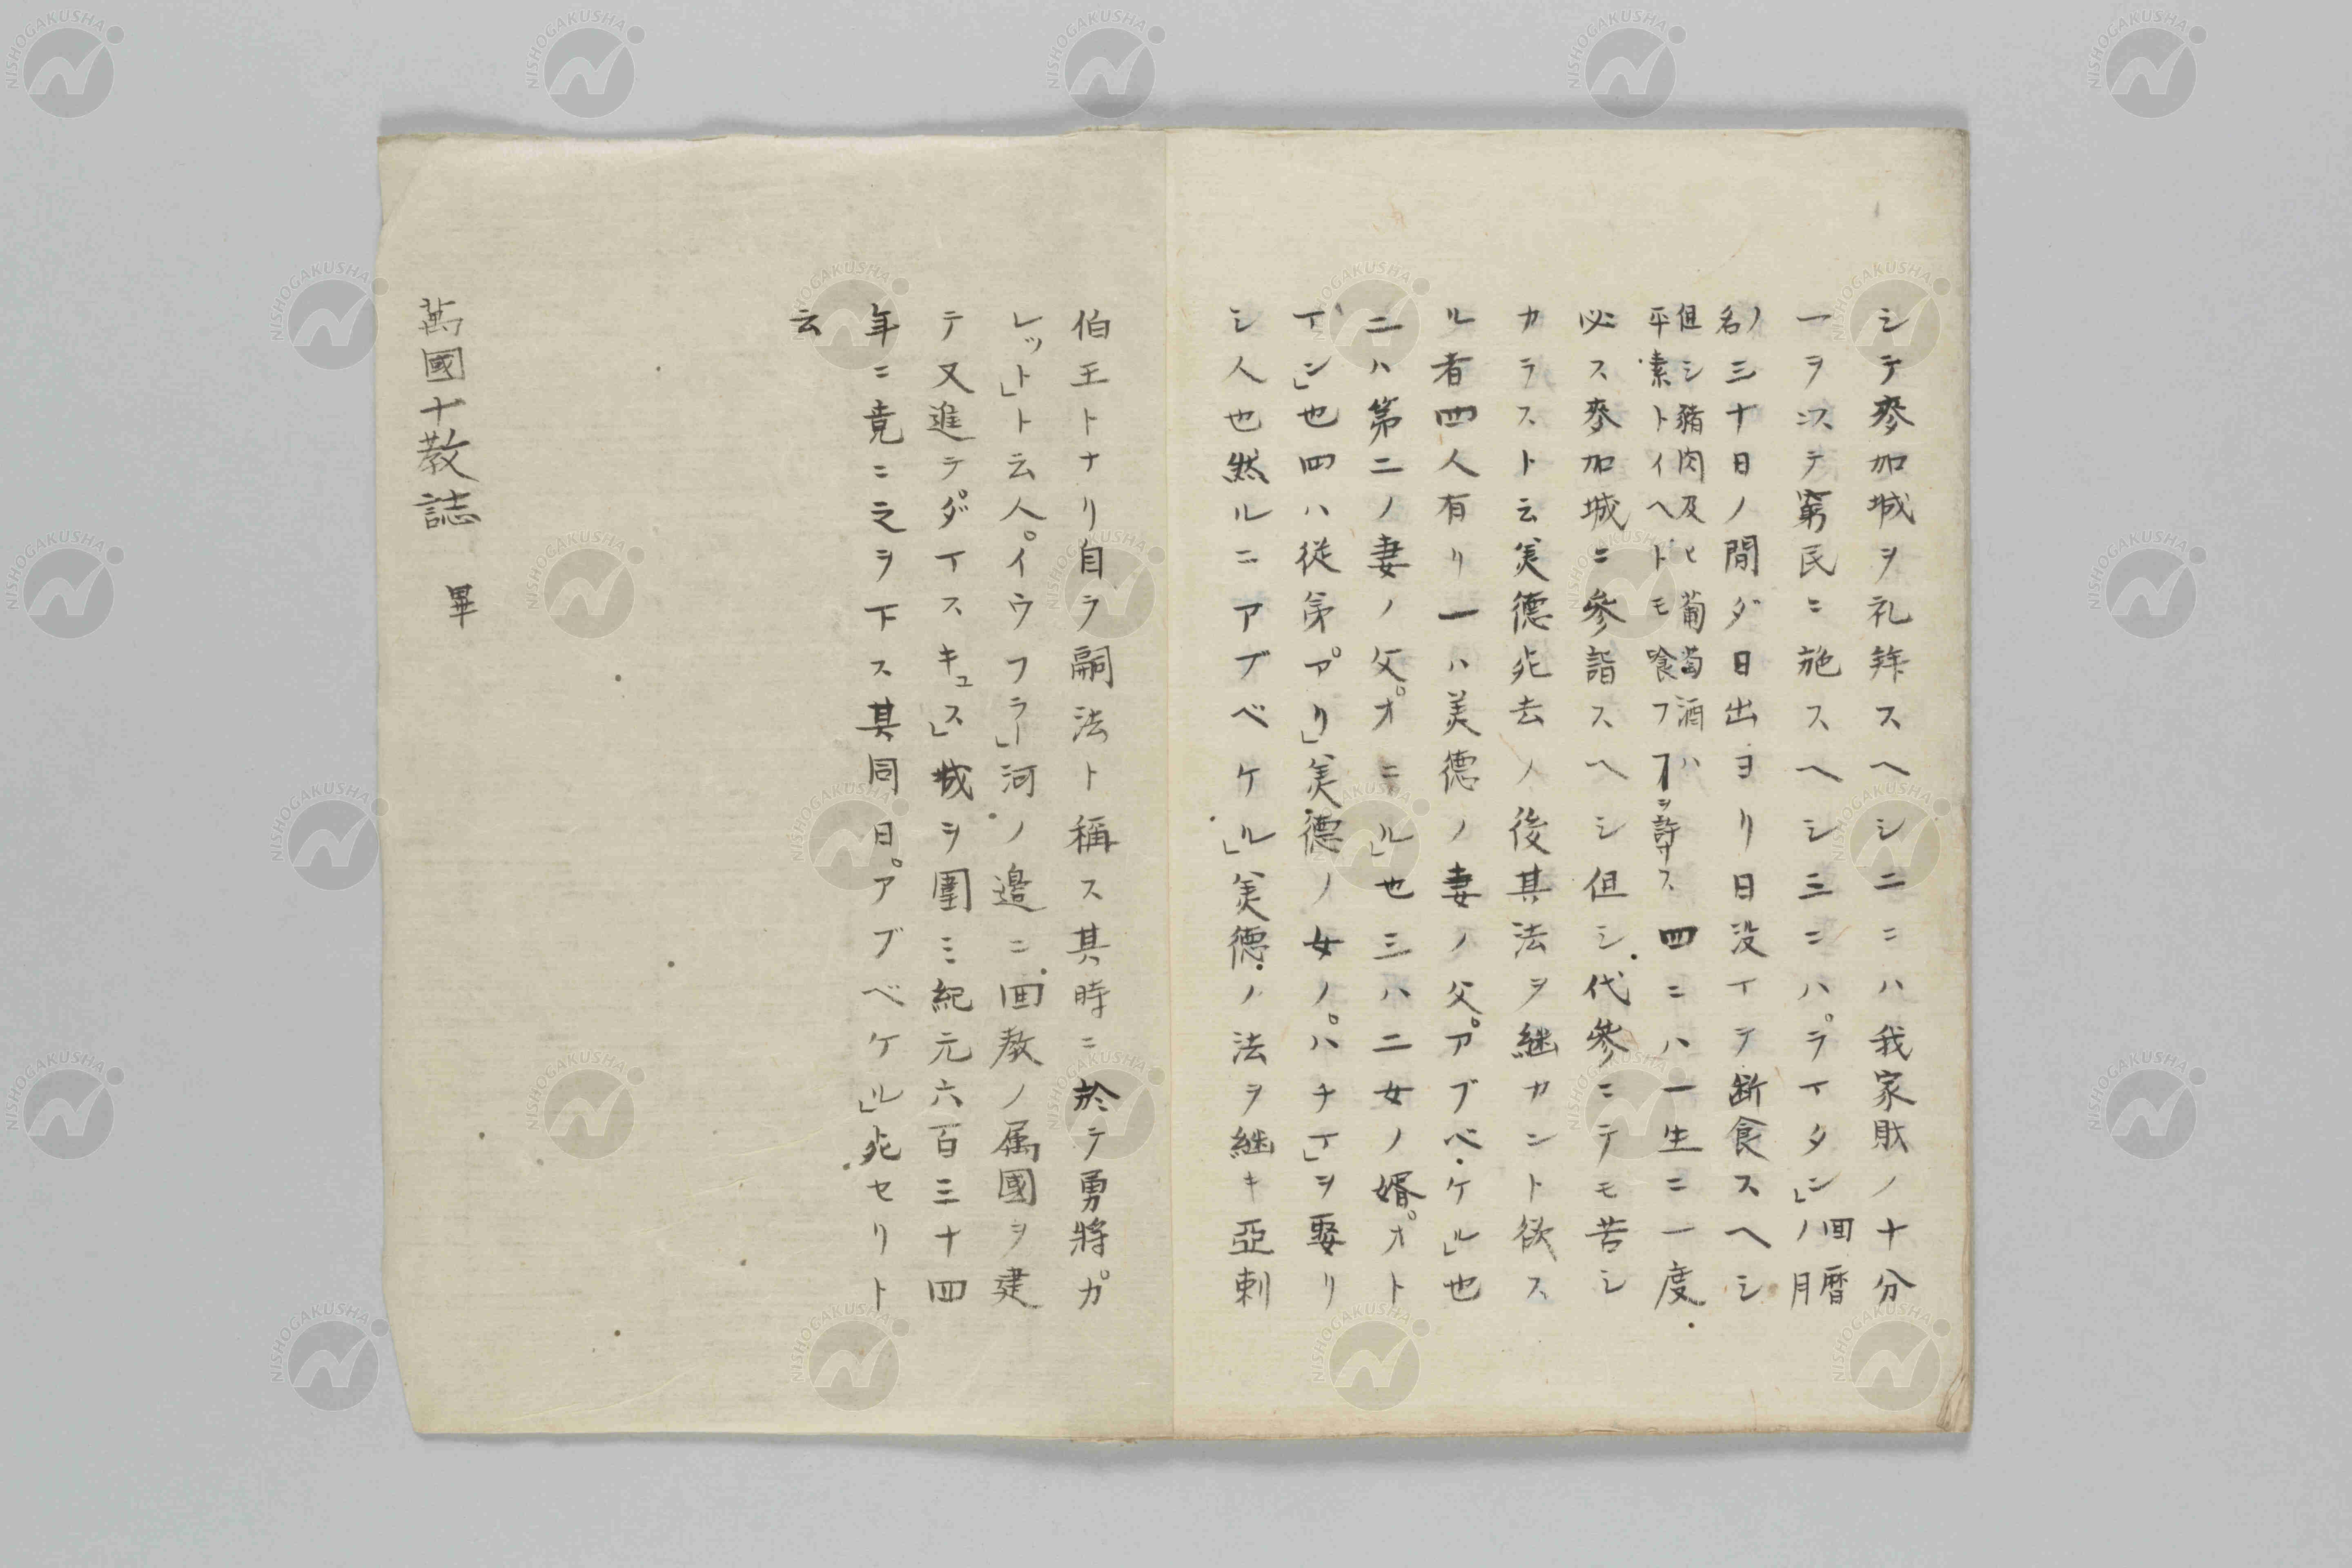 シテ麥加城ヲ礼拜スヘシ二ニハ我家財ノ十分
一ヲ以テ窮民ニ施スヘシ三ニハ゜ライタン」ノ回暦月
ノ名三十日ノ間ダ日出ヨリ日没イテ断食スヘシ
但シ豬肉及ヒ葡萄酒ハ平素トイヘドモ喰フヿヲ許サス四ニハ一生ニ一度
必ス麥加城ニ參詣スヘシ但シ代參ニテモ苦シ
カラスト云美德死去ノ後其法ヲ継カント欲ス
ル者四人有リ一ハ美德ノ妻ノ父゜アブベケル」也
二ハ第二ノ妻ノ父゜オニル」也三ハ二女ノ婿゜オト
イン」也四ハ従弟゜アリ」美德ノ女ノ゜ハチイ」ヲ娶リ
シ人也然ルニアブベケル」美德ノ法ヲ継キ亞剌
伯王トナリ自ラ嗣法ト稱ス其時ニ於テ勇將カ゜
レット」ト云人゜イウフラー」河ノ邉ニ回教ノ属國ヲ建
テ又進テ゜ダイスキュス」城ヲ圍ミ紀元六百三十四
年ニ竟ニ之ヲ下ス其同日゜アブベケル」死セリト
云
萬國十教誌 畢
NISHOGAKUSHA